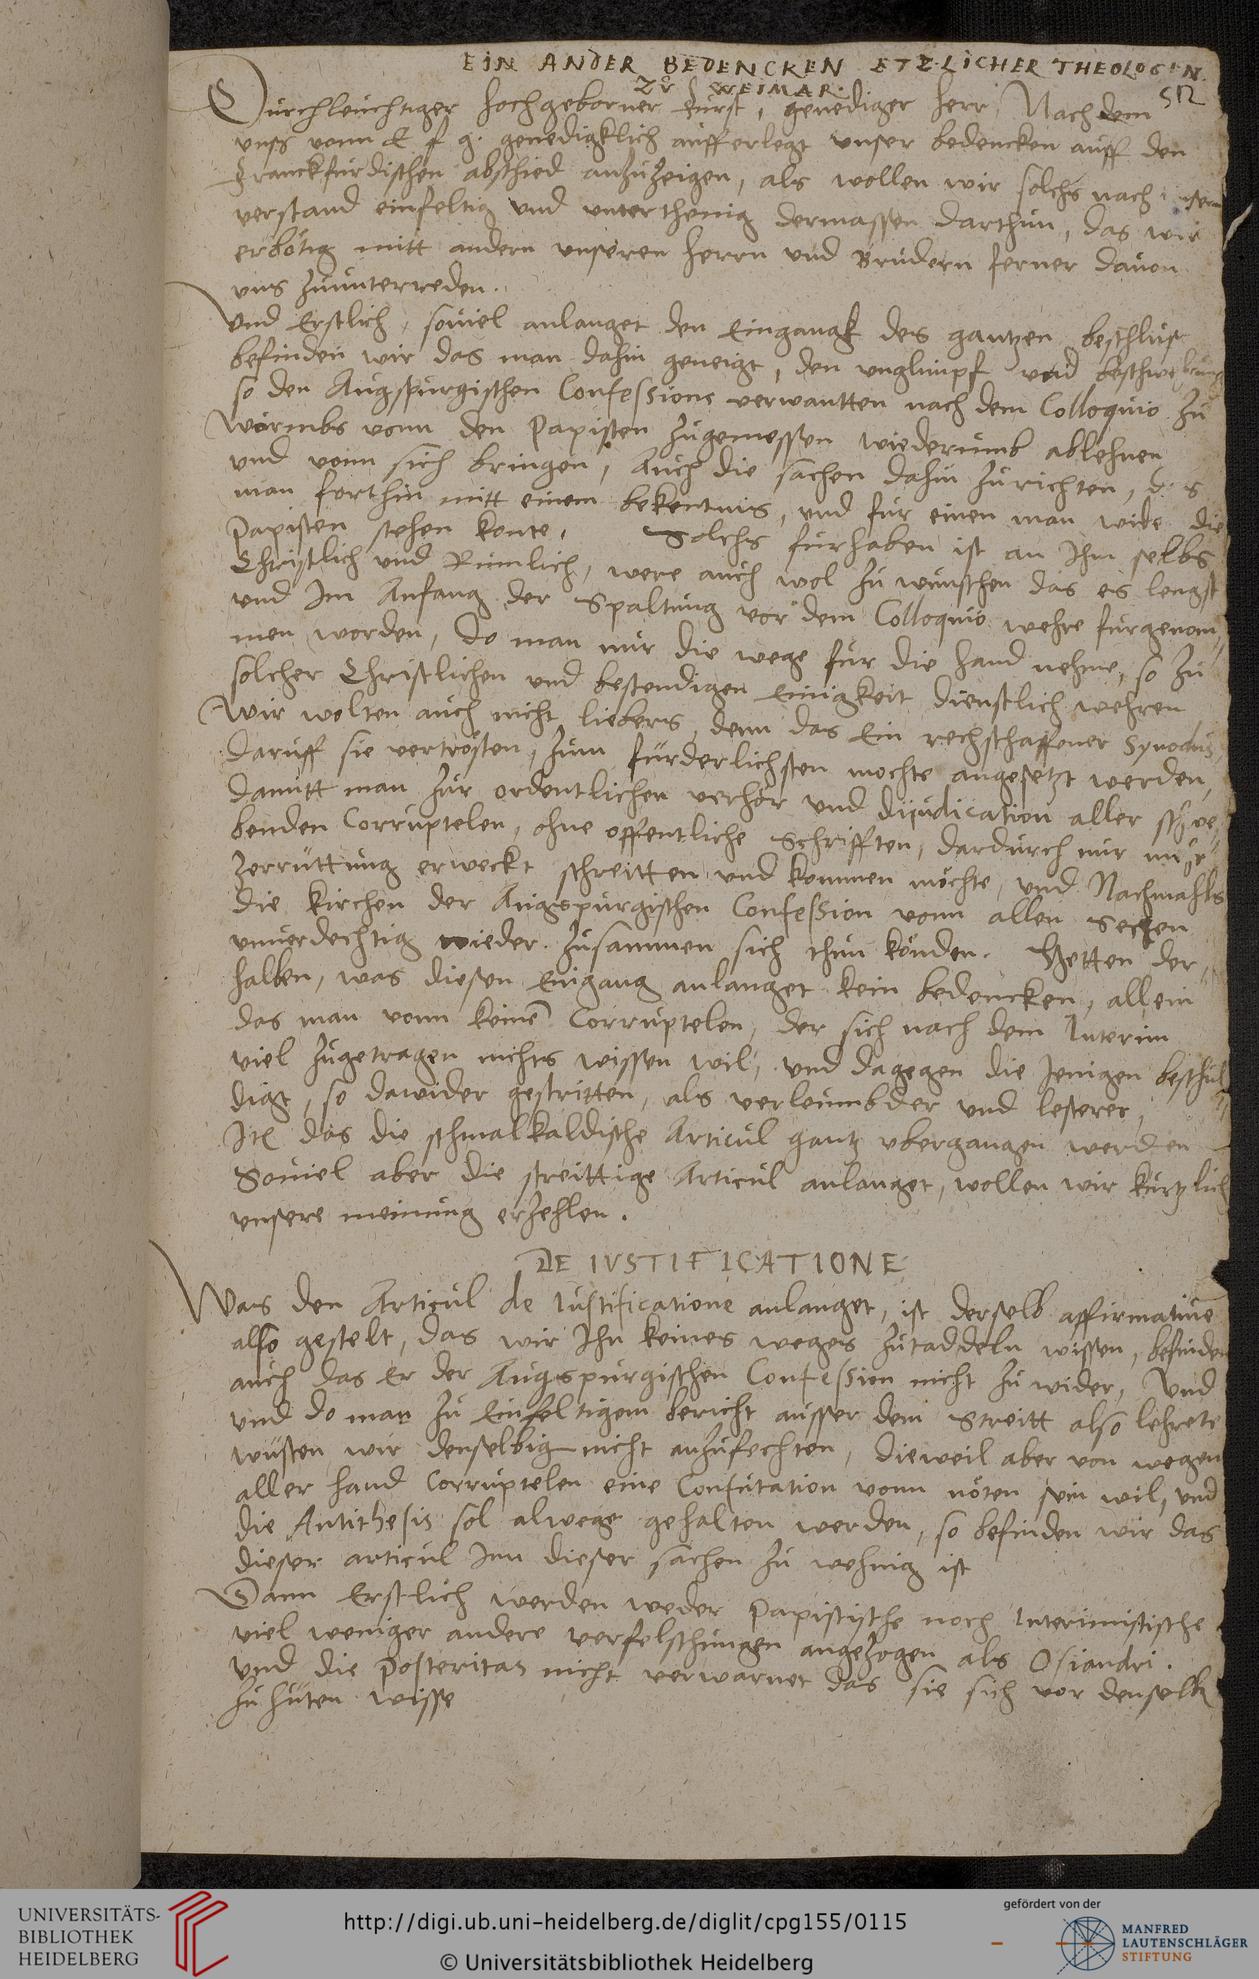 EIN ANDER BEDENCKEN ETZLICHER THEOLOGEN
ZU WEIMAR.
512
Durchleuchtiger hochgeborner Furst, genediger Herr, Nach dem
uns vonn E f g. genedigklich aufferlegt unser bedencken auff den
Franckfurdischen abschied anzuzeigen, als wollen wir solchs nach unserm
verstand einfeltig und unterthenig dermassen darthun, das wir
erbötig mitt andern unseren herrn und Brudern ferner davon
uns zuunterreden.
Und Erstlich, soviel anlanget den Eingangk des gantzen beschlus
befinden wir das man dahin geneigt, den unglimpf und
so den Augspurgischen Confessions verwantten nach dem Colloquio zu
Wormbs vonn den Papisten zugemessen wiederumb ablehnen
und vonn sich bringen, Auch die sachen dahin zurichten, das
man forthin mitt einem bekentnis, und fur einen man wider die
Papisten stehen konte. Solchs furhaben ist an Ihm selbs
Christlich und Rumlich, were auch wol zu wunschen das es lengst
und Im Anfang der Spaltung vor dem Colloquio wehre furgenom¬
men worden, do man nur die wege fur die hand nehme, so zu
solcher Christlichen und bestendigen Einigkeit dienstlich wehren
Wir wolten auch nicht liebers, denn das Ein rechschaffener Synodus
daruff sie vertrösten, zum fürderlichsten mochte angesetzt werden,
damitt man zur ordentlichen verhör und diiudication aller schwe¬
benden Corruptelen, ohne offentliche Schrifften, dardurch nur mehr
zerruttung erweckt schreitten und kommen möchte, und Nachmahls
die kirchen der Augspurgischen Confession vonn allen Secten
unverdechtig wieder zusammen sich thun könden. Hetten der¬
halben, was diesen Eingang anlanget kein bedencken, allein
das man vonn keinē Corruptelen, der sich nach dem Interim
viel zugetragen nichts wissen wil, und dagegen die Jenigen beschul
digt, so dawider gestritten, als verleumbder und lesterer,
Itē das die schmalkaldische Articul gantz ubergangen werden
Soviel aber die streittige Articul anlanget, wollen wir kurtzlich
unsere meinung erzehlen.
DE IUSTIFICATIONE
Was den Articul de Iustificatione anlanget, ist derselb affirmative
also gestelt, das wir Ihn keines weges zutaddeln wissen, befinden
auch das Er der Augspurgischen Confession nicht zu wider, Und
und do man zu Einfeltigem bericht ausser dem Streitt also lehrete
wusten wir denselbig nicht anzufechten, dieweil aber von wegen
aller hand Corruptelen eine Confutation vonn nöten sein wil, und
die Antithesis sol alwege gehalten werden, so befinden wir das
dieser articul Inn dieser sachen zu wehnig ist
Dann Erstlich werden weder Papistische noch Interimistische
viel weniger andere verfelschungen angezogen als Osiandri.
und die Posteritas nicht verwarnet das sie sich vor denselbē
zu huten wisse
UNIVERSITÄTS-
BIBLIOTHEK
HEIDELBERG
http://digi.ub.uni-heidelberg.de/diglit/cpg155/0115
© Universitätsbibliothek Heidelberg
gefördert von der
MANFRED
LAUTENSCHLÄGER
STIFTUNG